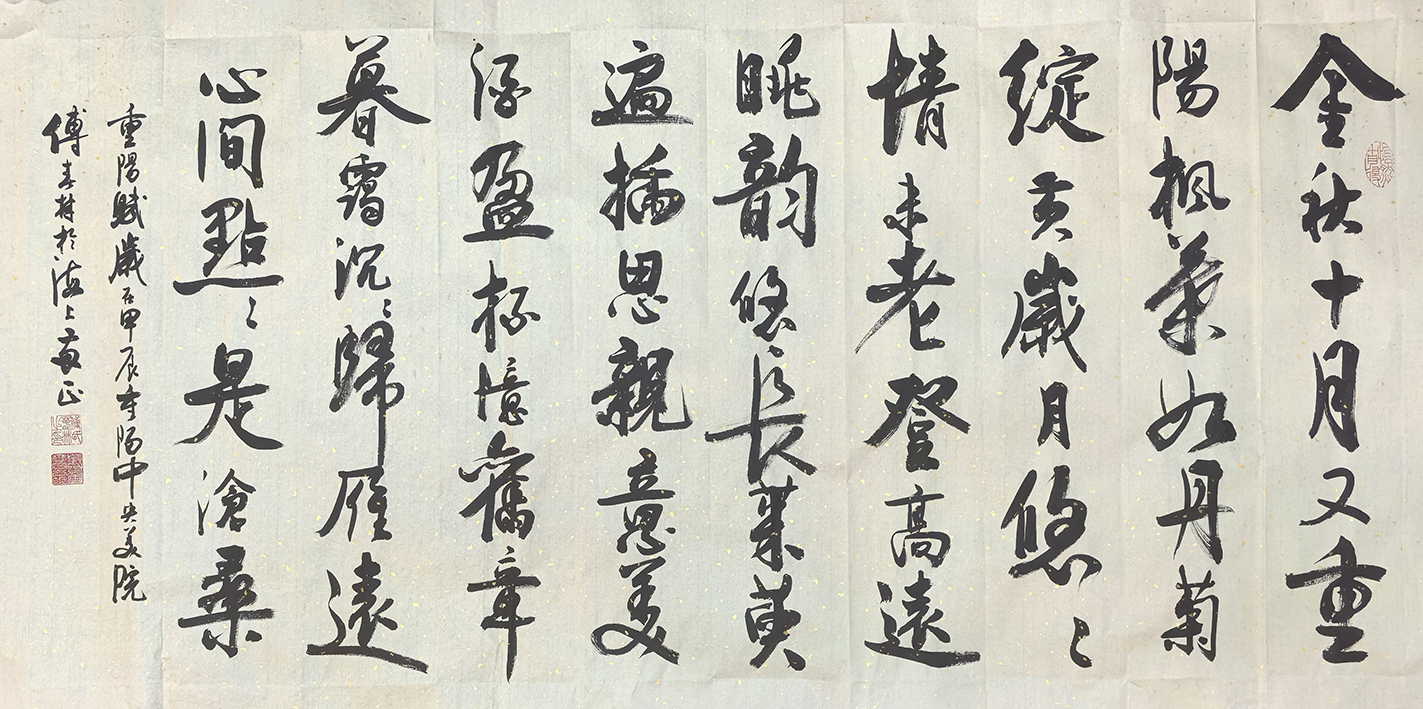 金秋十月又重
陽楓葉如丹菊
綻黃歲月悠〻
情未老登高遠
眺韻悠長茱萸
遍插思親意美
酒盈杯憶舊章
暮靄沉〻歸雁遠
心間點〻是滄桑
重陽賦歲在甲辰重陽中央美院
傅春村於海上